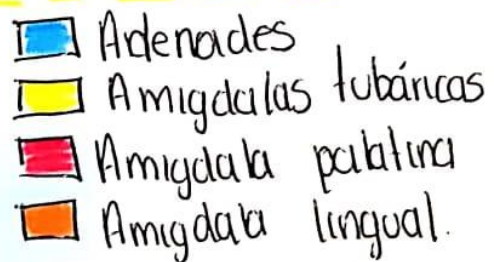 Adenoides
Amigdalas tubáricas
Amigdala palatina
Amigdala lingual.